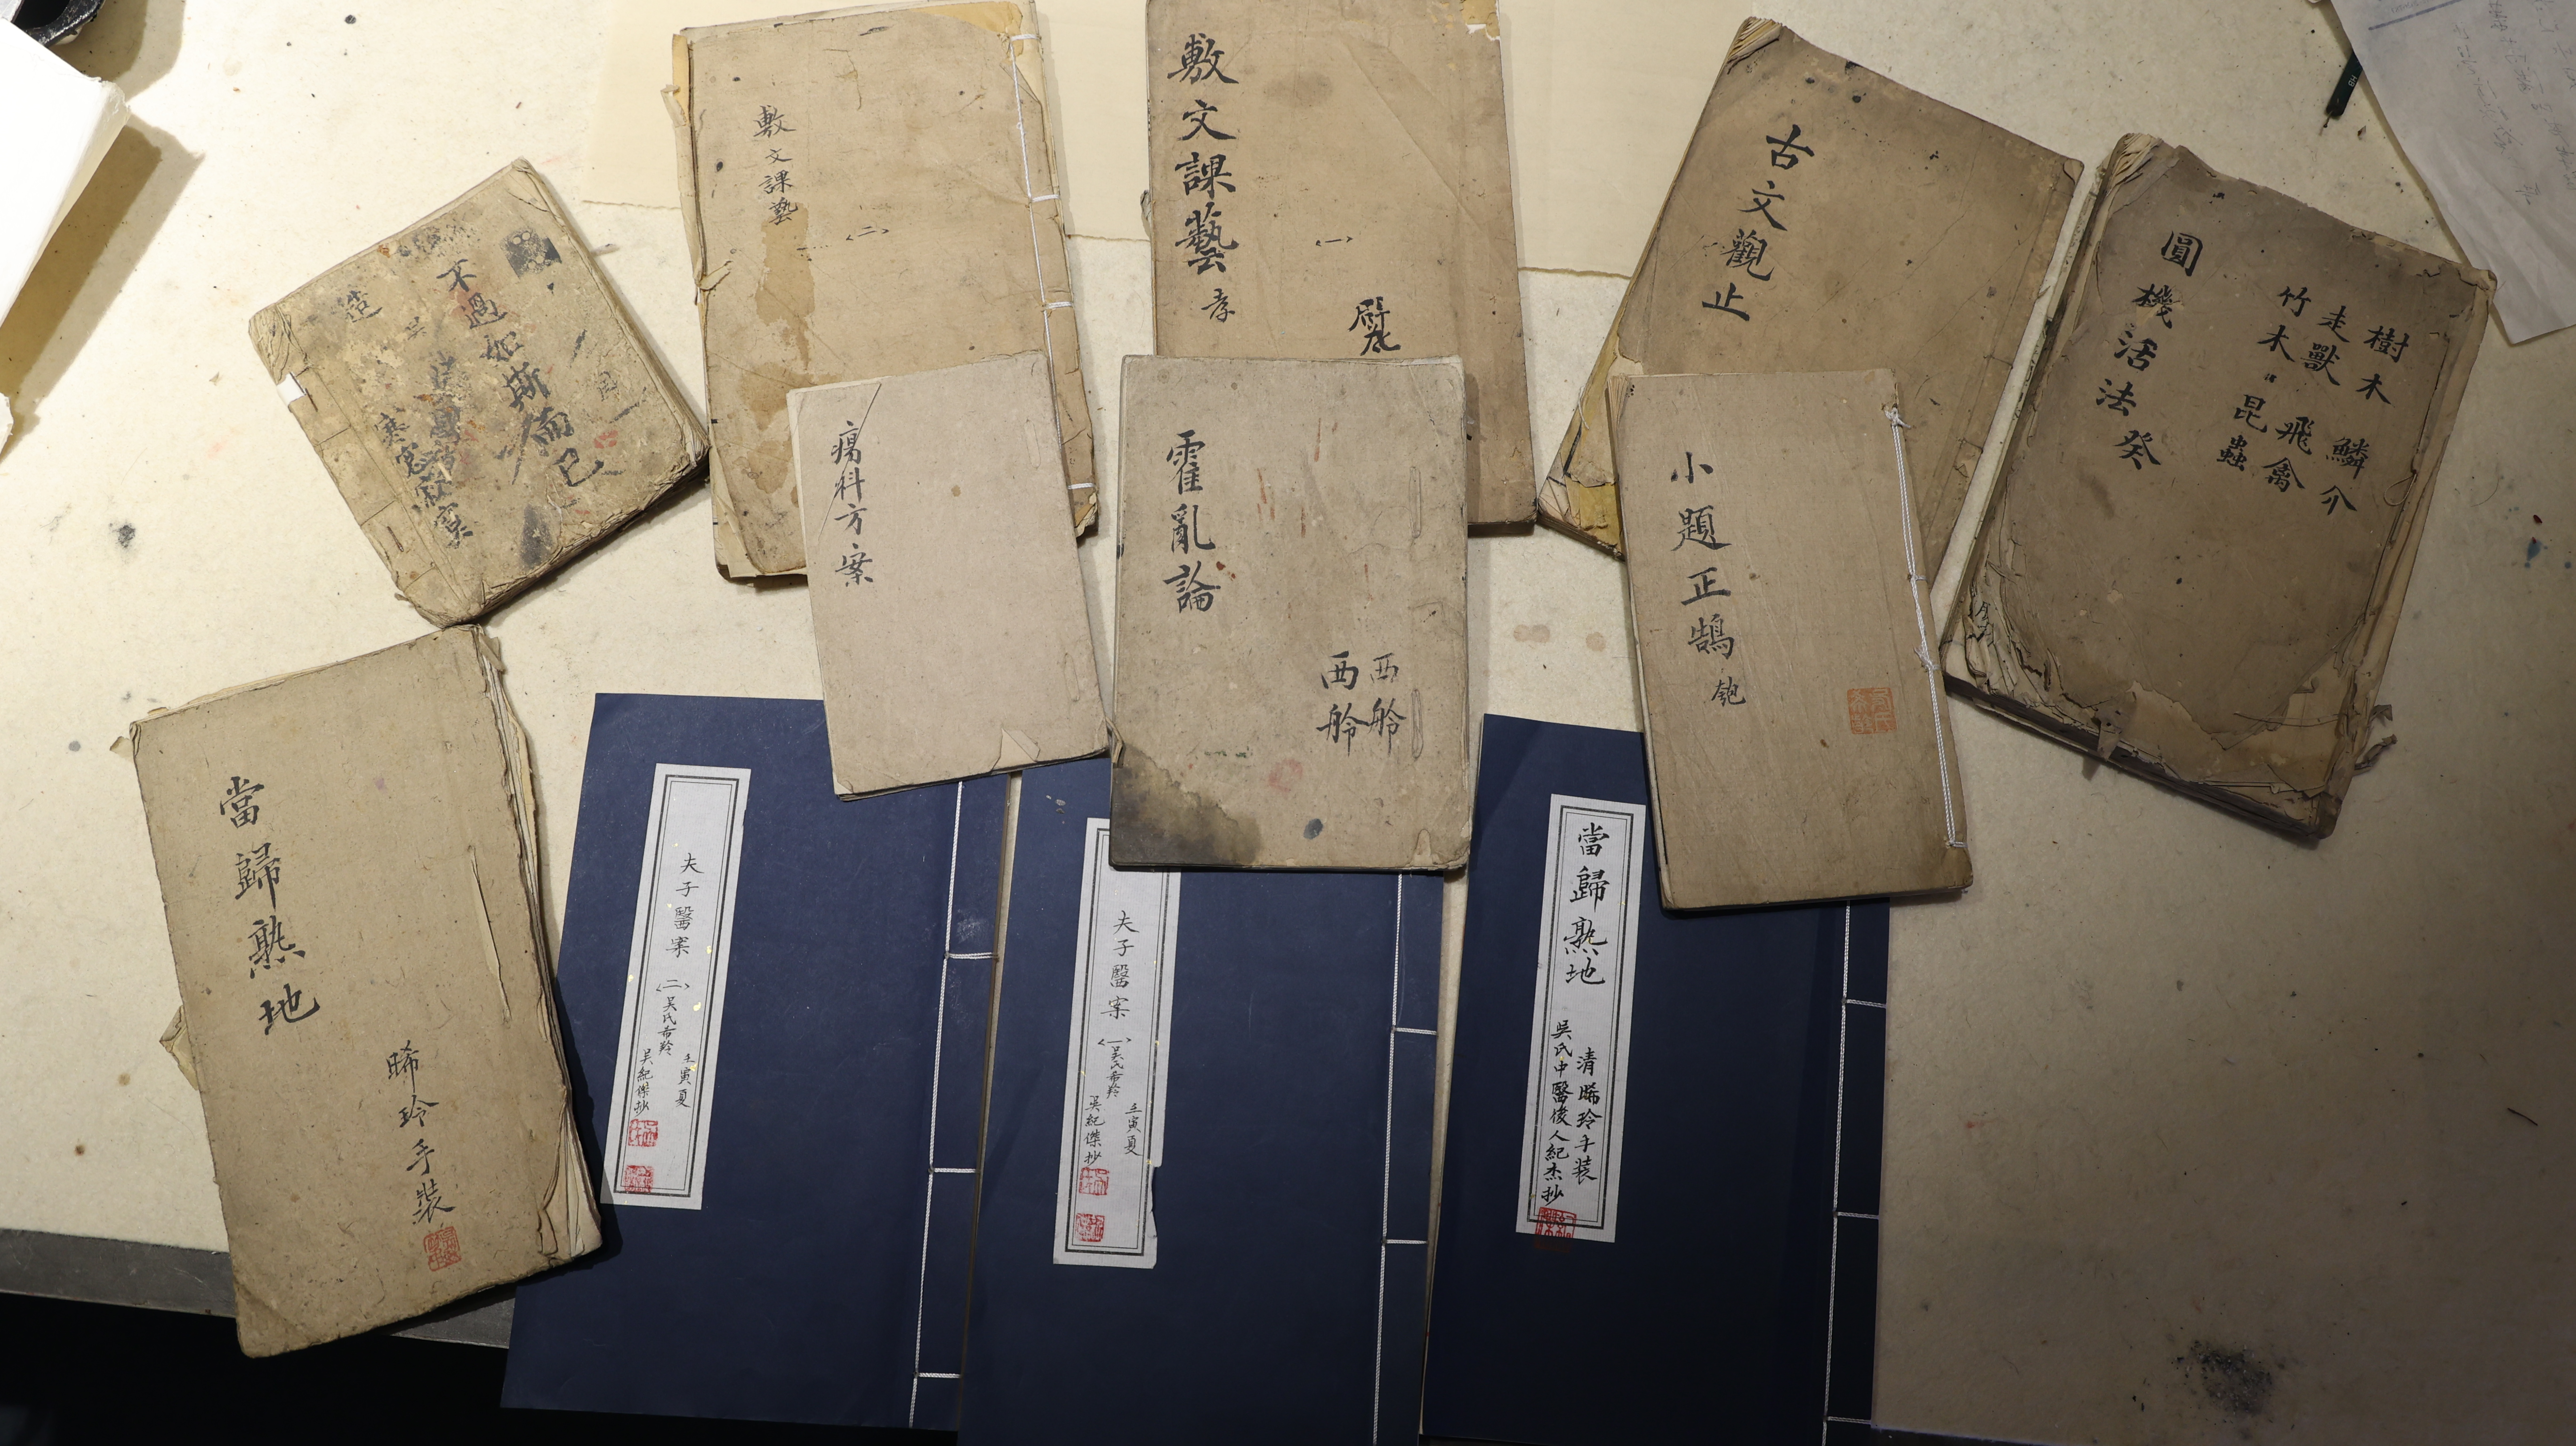 不過如斯而已
造
敷文課藝
(二)
敷文課藝
(一)
古文觀止
圓機活法
癸
樹木 鱗介
走獸 飛禽
竹木 昆蟲
瘍科方案
霍亂論
西舲
西舲
小題正鵠
當歸熟地
晞玲手裝
夫子醫案
(二)吴氏希羚
壬寅夏
吴紀傑抄
夫子醫案
(一)吴氏希羚
壬寅夏
吴紀傑抄
當歸熟地
清晞玲手装
吳氏中醫後人紀杰抄
HB